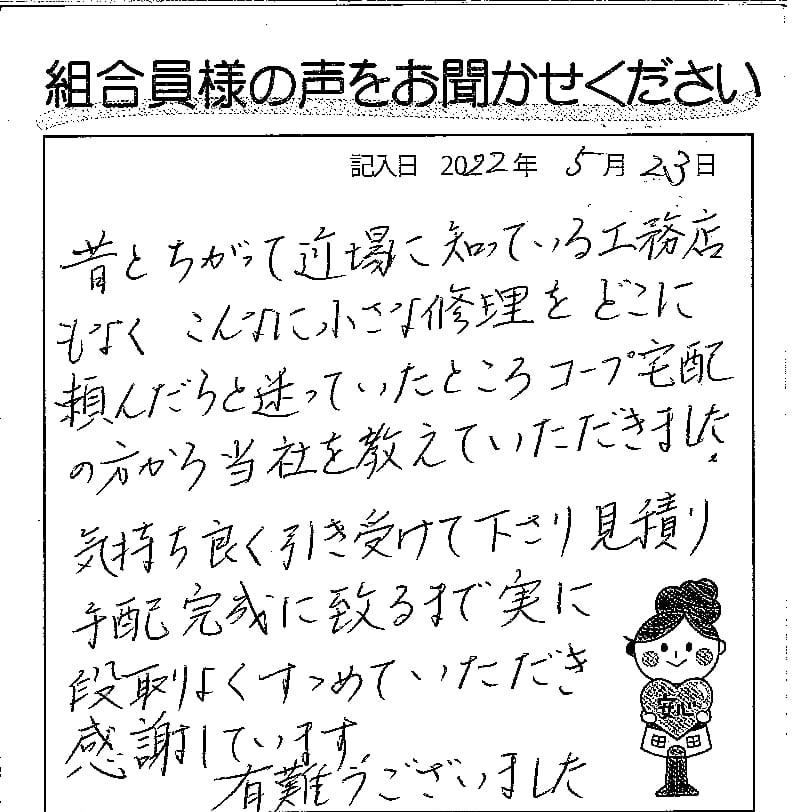 組合員様の声をお聞かせください
記入日 2022年 5月 23日
昔とちがって近場に知っている工務店
もなく こんなに小さな修理を どこに
頼んだらと迷っていたところ コープ宅配
の方から当社を教えていただきました。
気持ち良く引き受けて下さり見積り
手配完成に致るまで実に
段取りよくすすめていただき
感謝しています。
有難うございました
安心